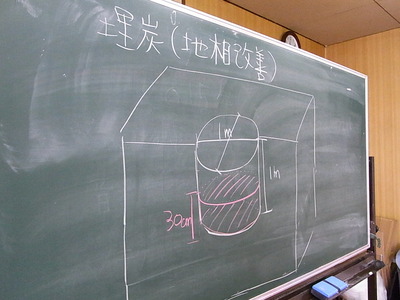 埋炭(地相改善)
1m
1m
30cm